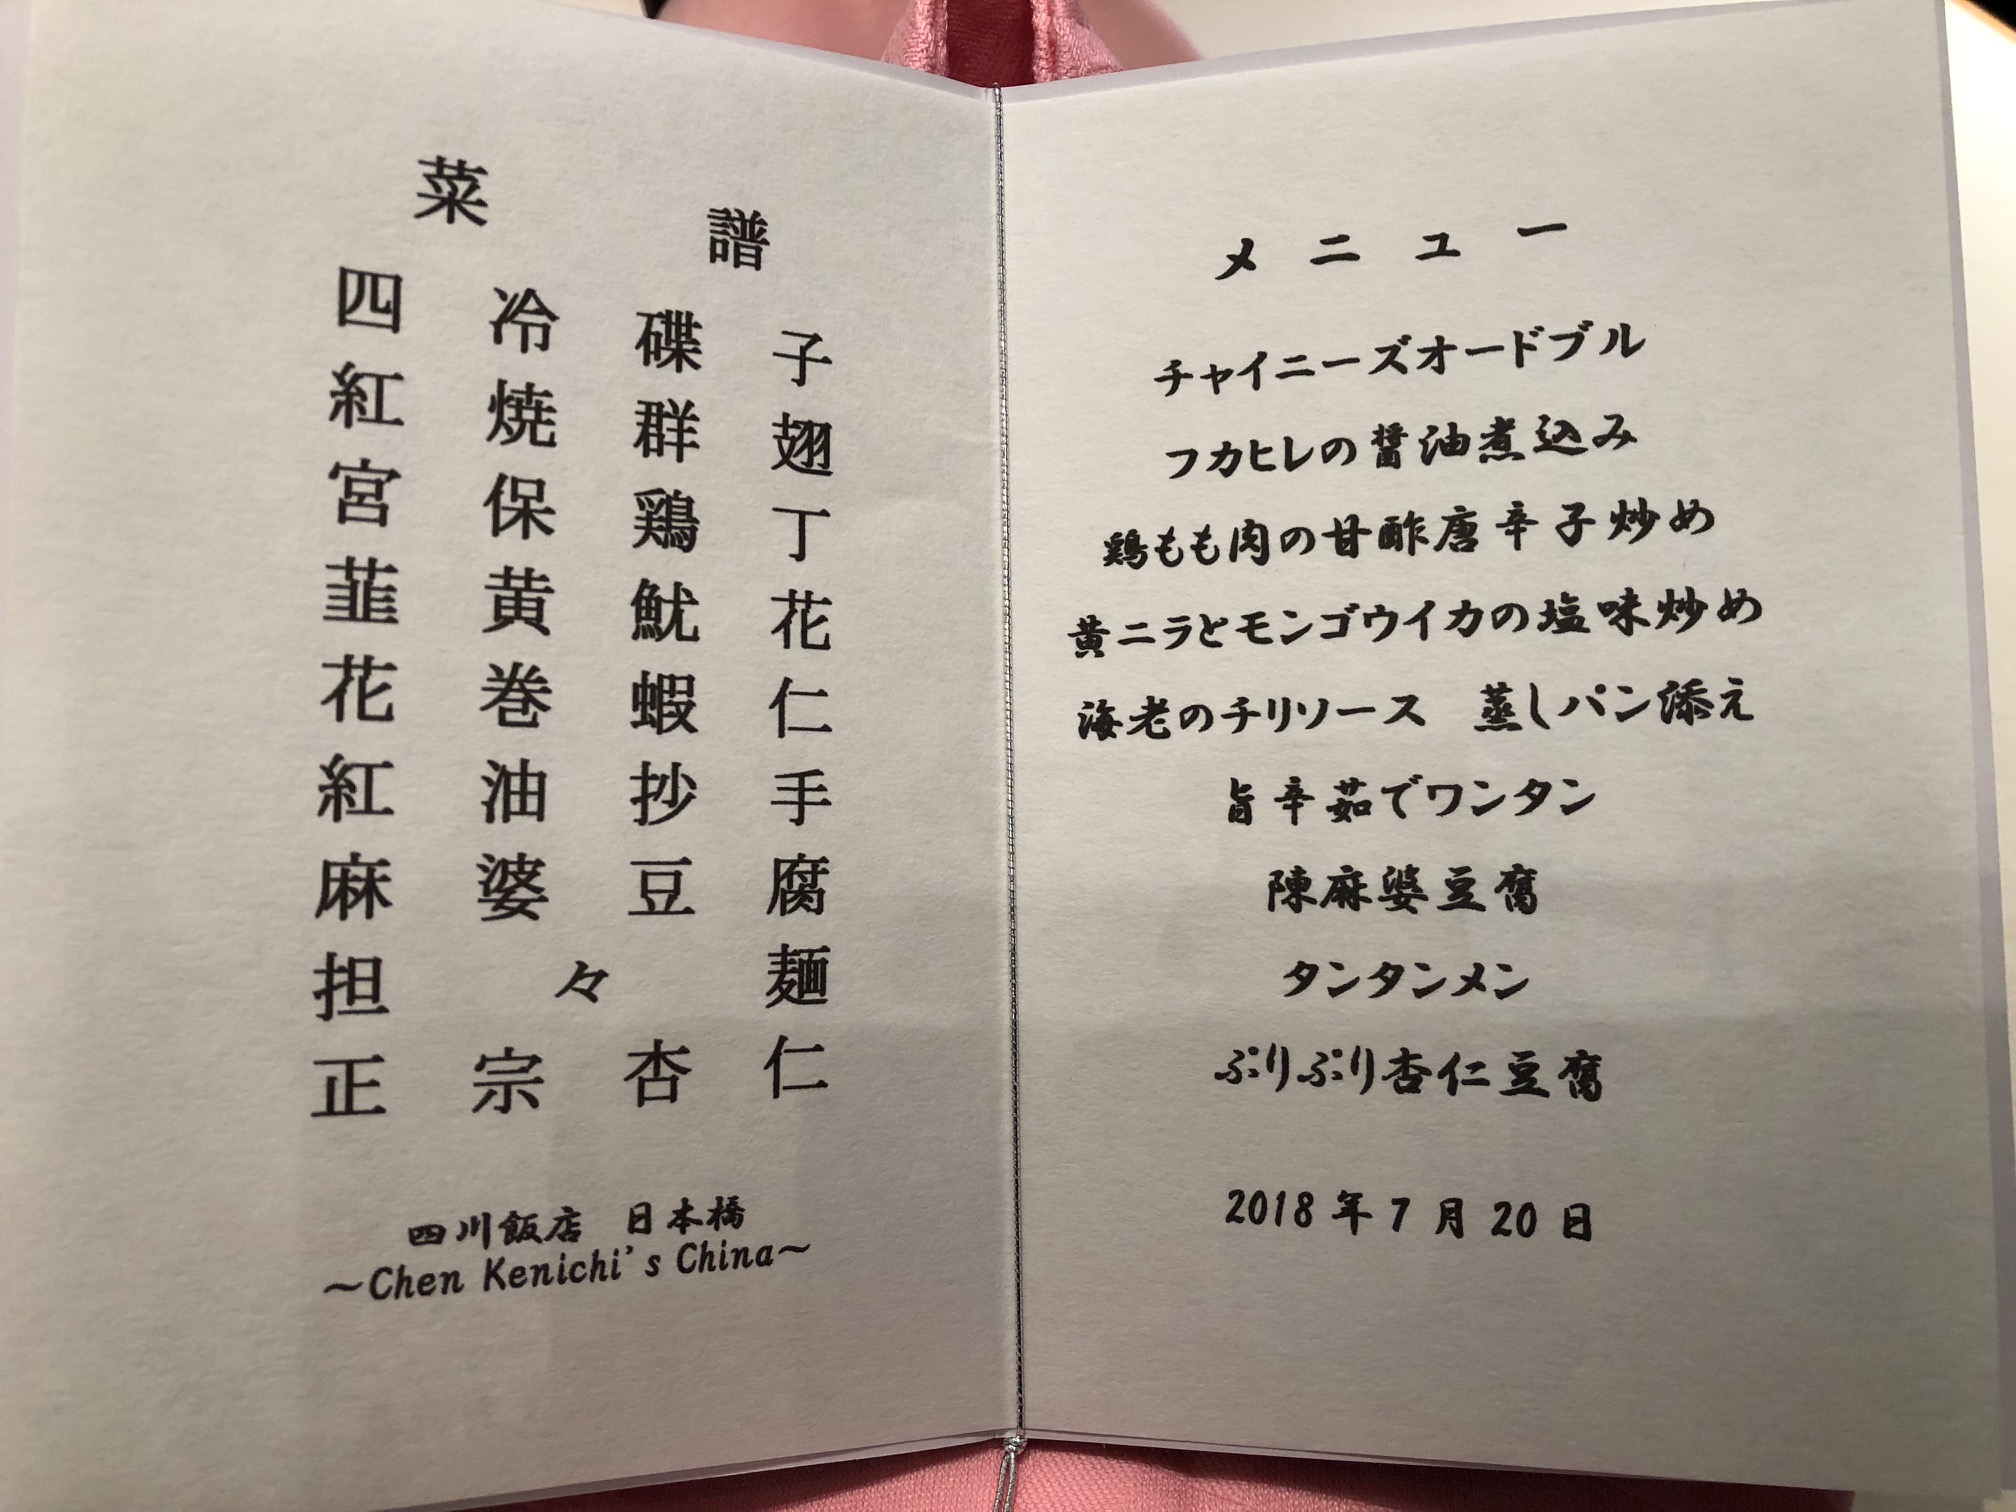 菜譜
四冷碟子
紅焼群翅
宮保鶏丁
韮黄魷花
花巻蝦仁
紅油抄手
麻婆豆腐
担々麺
正宗杏仁
四川飯店 日本橋
~Chen Kenichi's China~
メニュー
チャイニーズオードブル
フカヒレの醤油煮込み
鶏もも肉の甘酢唐辛子炒め
黄ニラとモンゴウイカの塩味炒め
海老のチリソース 蒸しパン添え
旨辛茹でワンタン
陳麻婆豆腐
タンタンメン
ぷりぷり杏仁豆腐
2018年7月20日